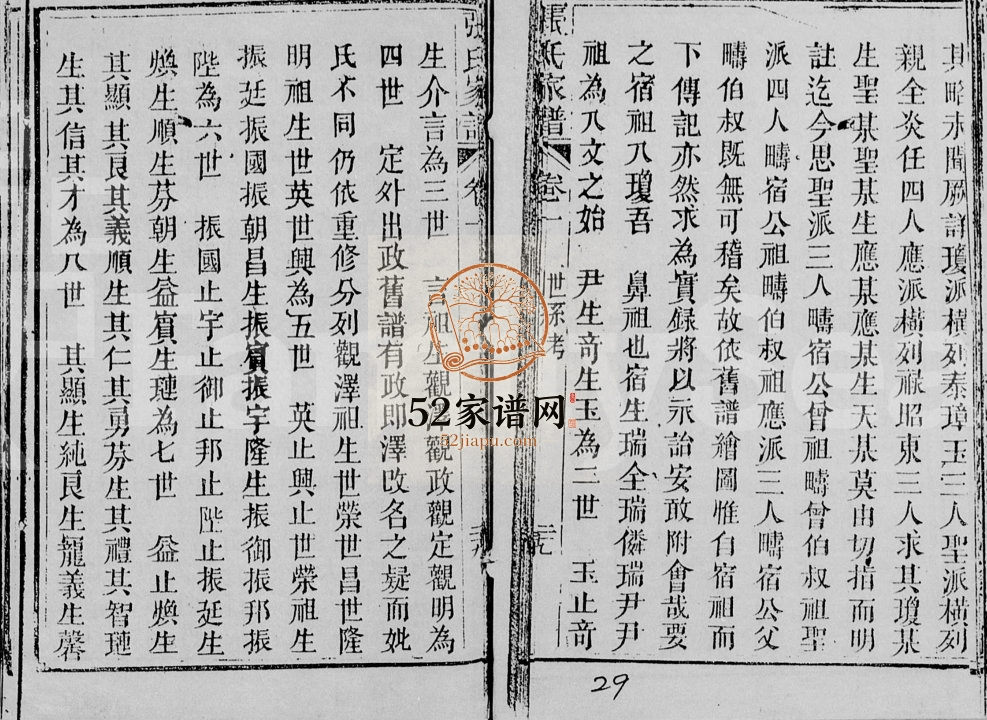 其略未聞厥詳瓊派橫列泰璋玉三人聖派橫列
親全炎任四人應派橫列祿昭東三人求其瓊某
生聖某聖某生應某應某生天某莫由切指而明
註迄今思聖派三人疇宿公曾祖疇曾伯叔祖聖
派四人疇宿公祖疇伯叔祖應派三人疇宿公父
疇伯叔既無可稽矣故依舊譜繪圖惟自宿祖而
下傳記亦然求為實録將以示詒安敢附會哉要
之宿祖乃瓊吾 鼻祖也宿生瑞全瑞僯瑞尹尹
祖為八文之始 尹生竒生玉為二世 玉止竒
張氏家譜 卷一 世系考 二十九
張氏家譜 卷一 二十九
生介言為三世 言祖生觀 觀政觀定觀明為
四世 定外出政舊譜有政即澤改名之疑而妣
氏不同仍依重修分列觀澤祖生世荣世昌世隆
明祖生世英世興為五世 英止興止世荣祖生
振廷振國振朝昌生振賓振宇隆生振御振邦振
陛為六世 振國止宇止御止邦止陛止振廷生
煥生順生芬朝生益賓生璉為七世 益止煥生
其顯其良其義順生其仁其勇芬生其禮其智璉
生其信其才為八世 其顯生純良生龍義生馨
52家谱网
52jiapu.com
29